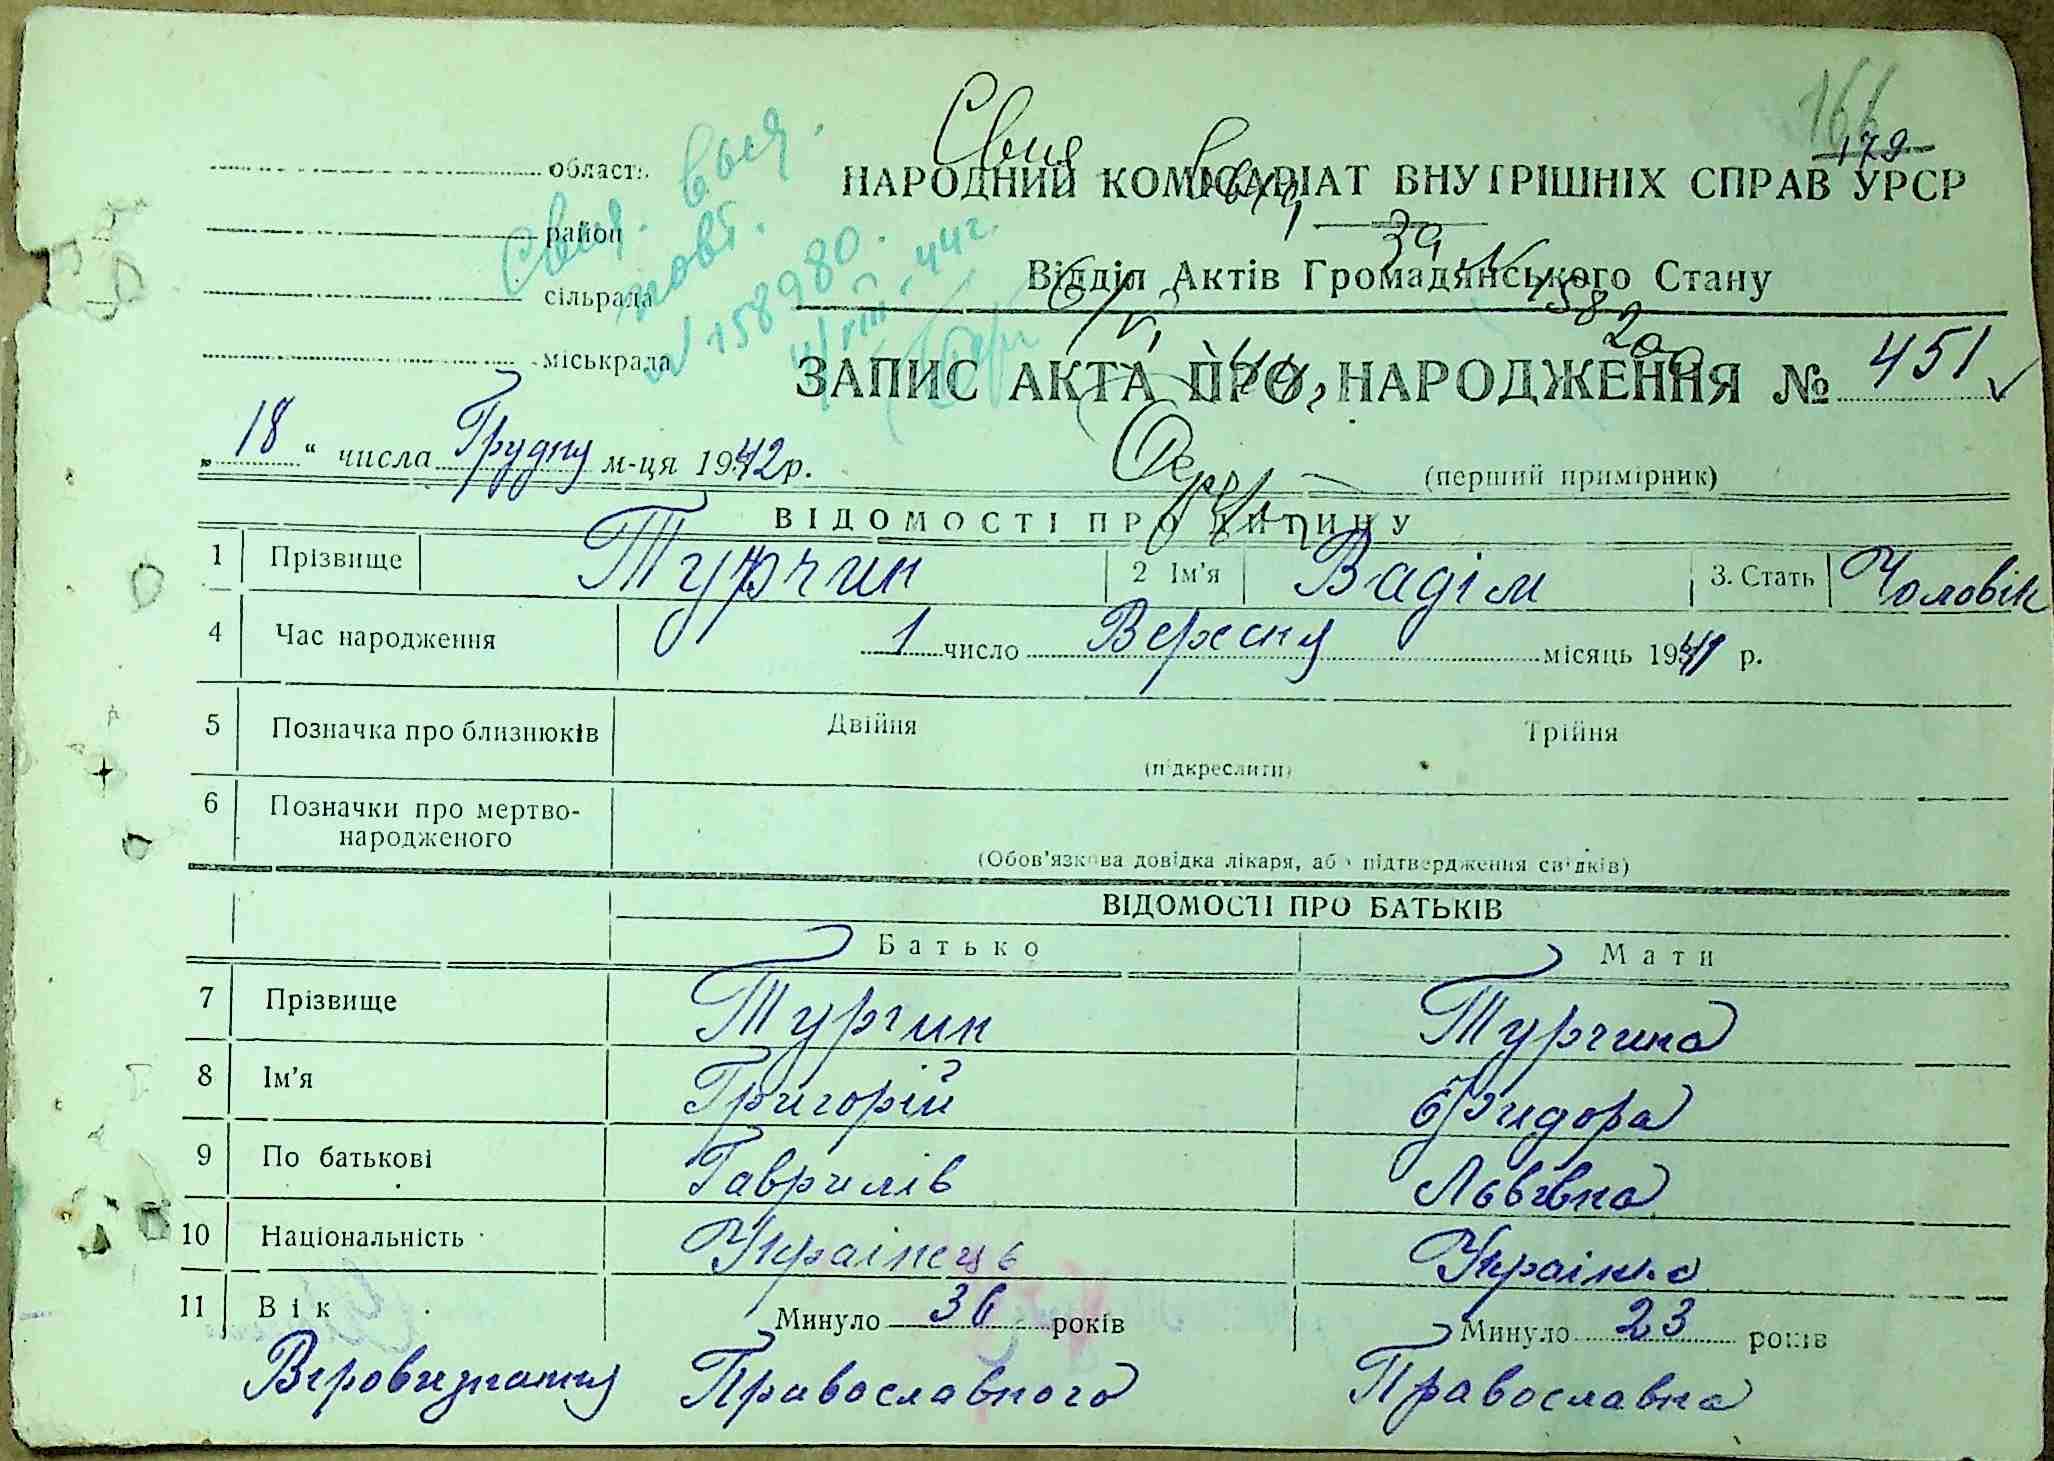 166
179
Свид. выд.
повт.
№ 158980.
44 г.
Свид
выд
за №
область
НАРОДНИЙ КОМІСАРІАТ ВНУТРІШНІХ СПРАВ УРСР
район
Відділ Актів Громадянського Стану
сільрада
міськрада
ЗАПИС АКТА ПРО НАРОДЖЕННЯ № 451
„18“ числа Грудня м-ця 1942 р.
(перший примірник)
ВІДОМОСТІ ПРО ДИТИНУ
1 Прізвище Турчин 2 Ім'я Вадім 3. Стать Чоловік
4 Час народження 1 число Вересня місяць 1941 р.
5 Позначка про близнюків Двійня Трійня
(підкреслити)
6 Позначки про мертво-
народженого
(Обов'язкова довідка лікаря, або підтвердження свідків)
ВІДОМОСТІ ПРО БАТЬКІВ
Батько Мати
7 Прізвище Турчин Турчина
8 Ім'я Григорій
9 По батькові Гаврилів Львівна
10 Національність Українець Українка
11 Вік Минуло 36 років Минуло 23 років
Віровизнання Православного Православна